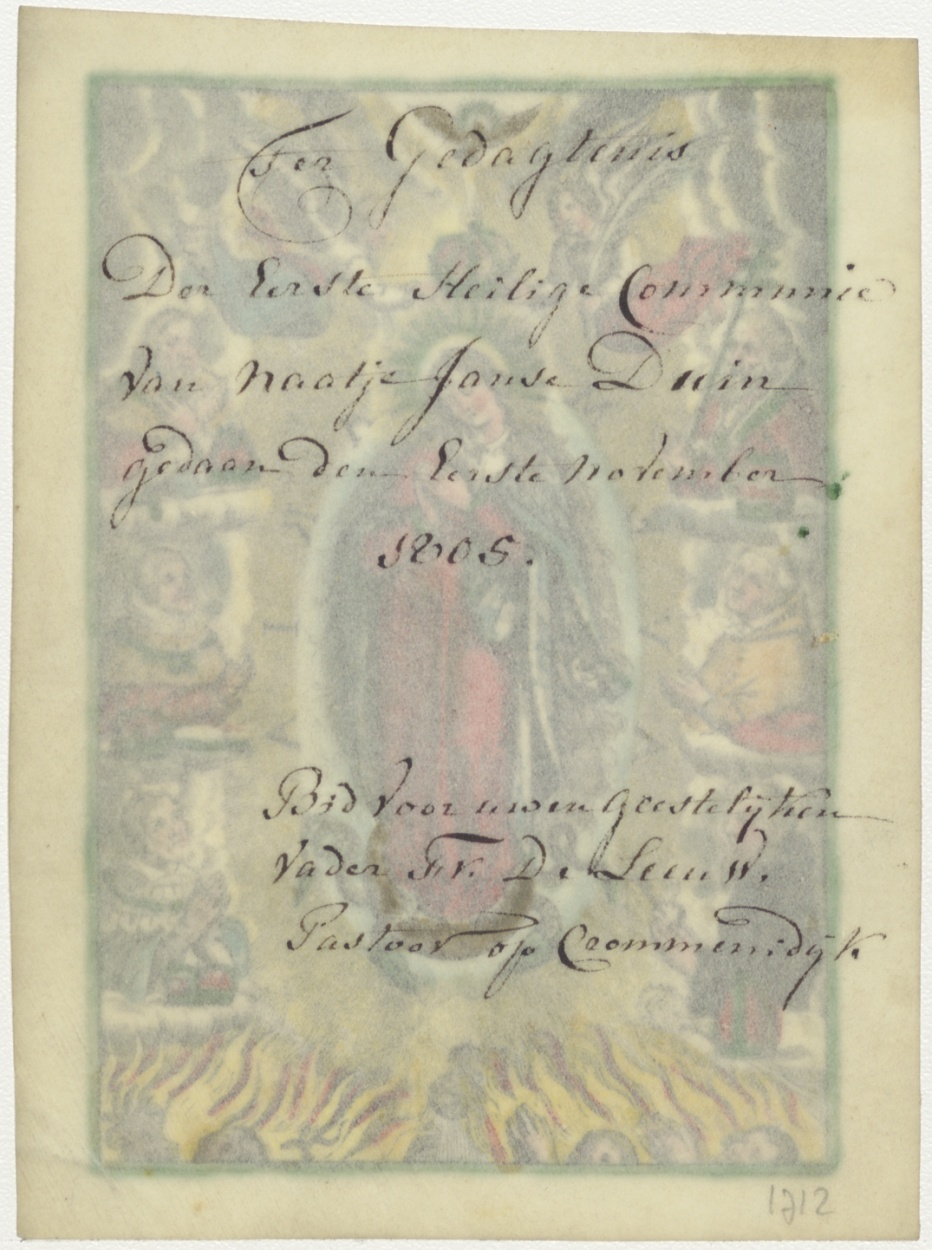 Ter Gedagtenis
Der Eerste Heilige Communie
van Naatje Janse Duin
gedaan den Eerste November
1805.
Bid voor uwen Geestelyken
vader Fr. De Leeuw.
Pastoor op Crommenidyk
1712